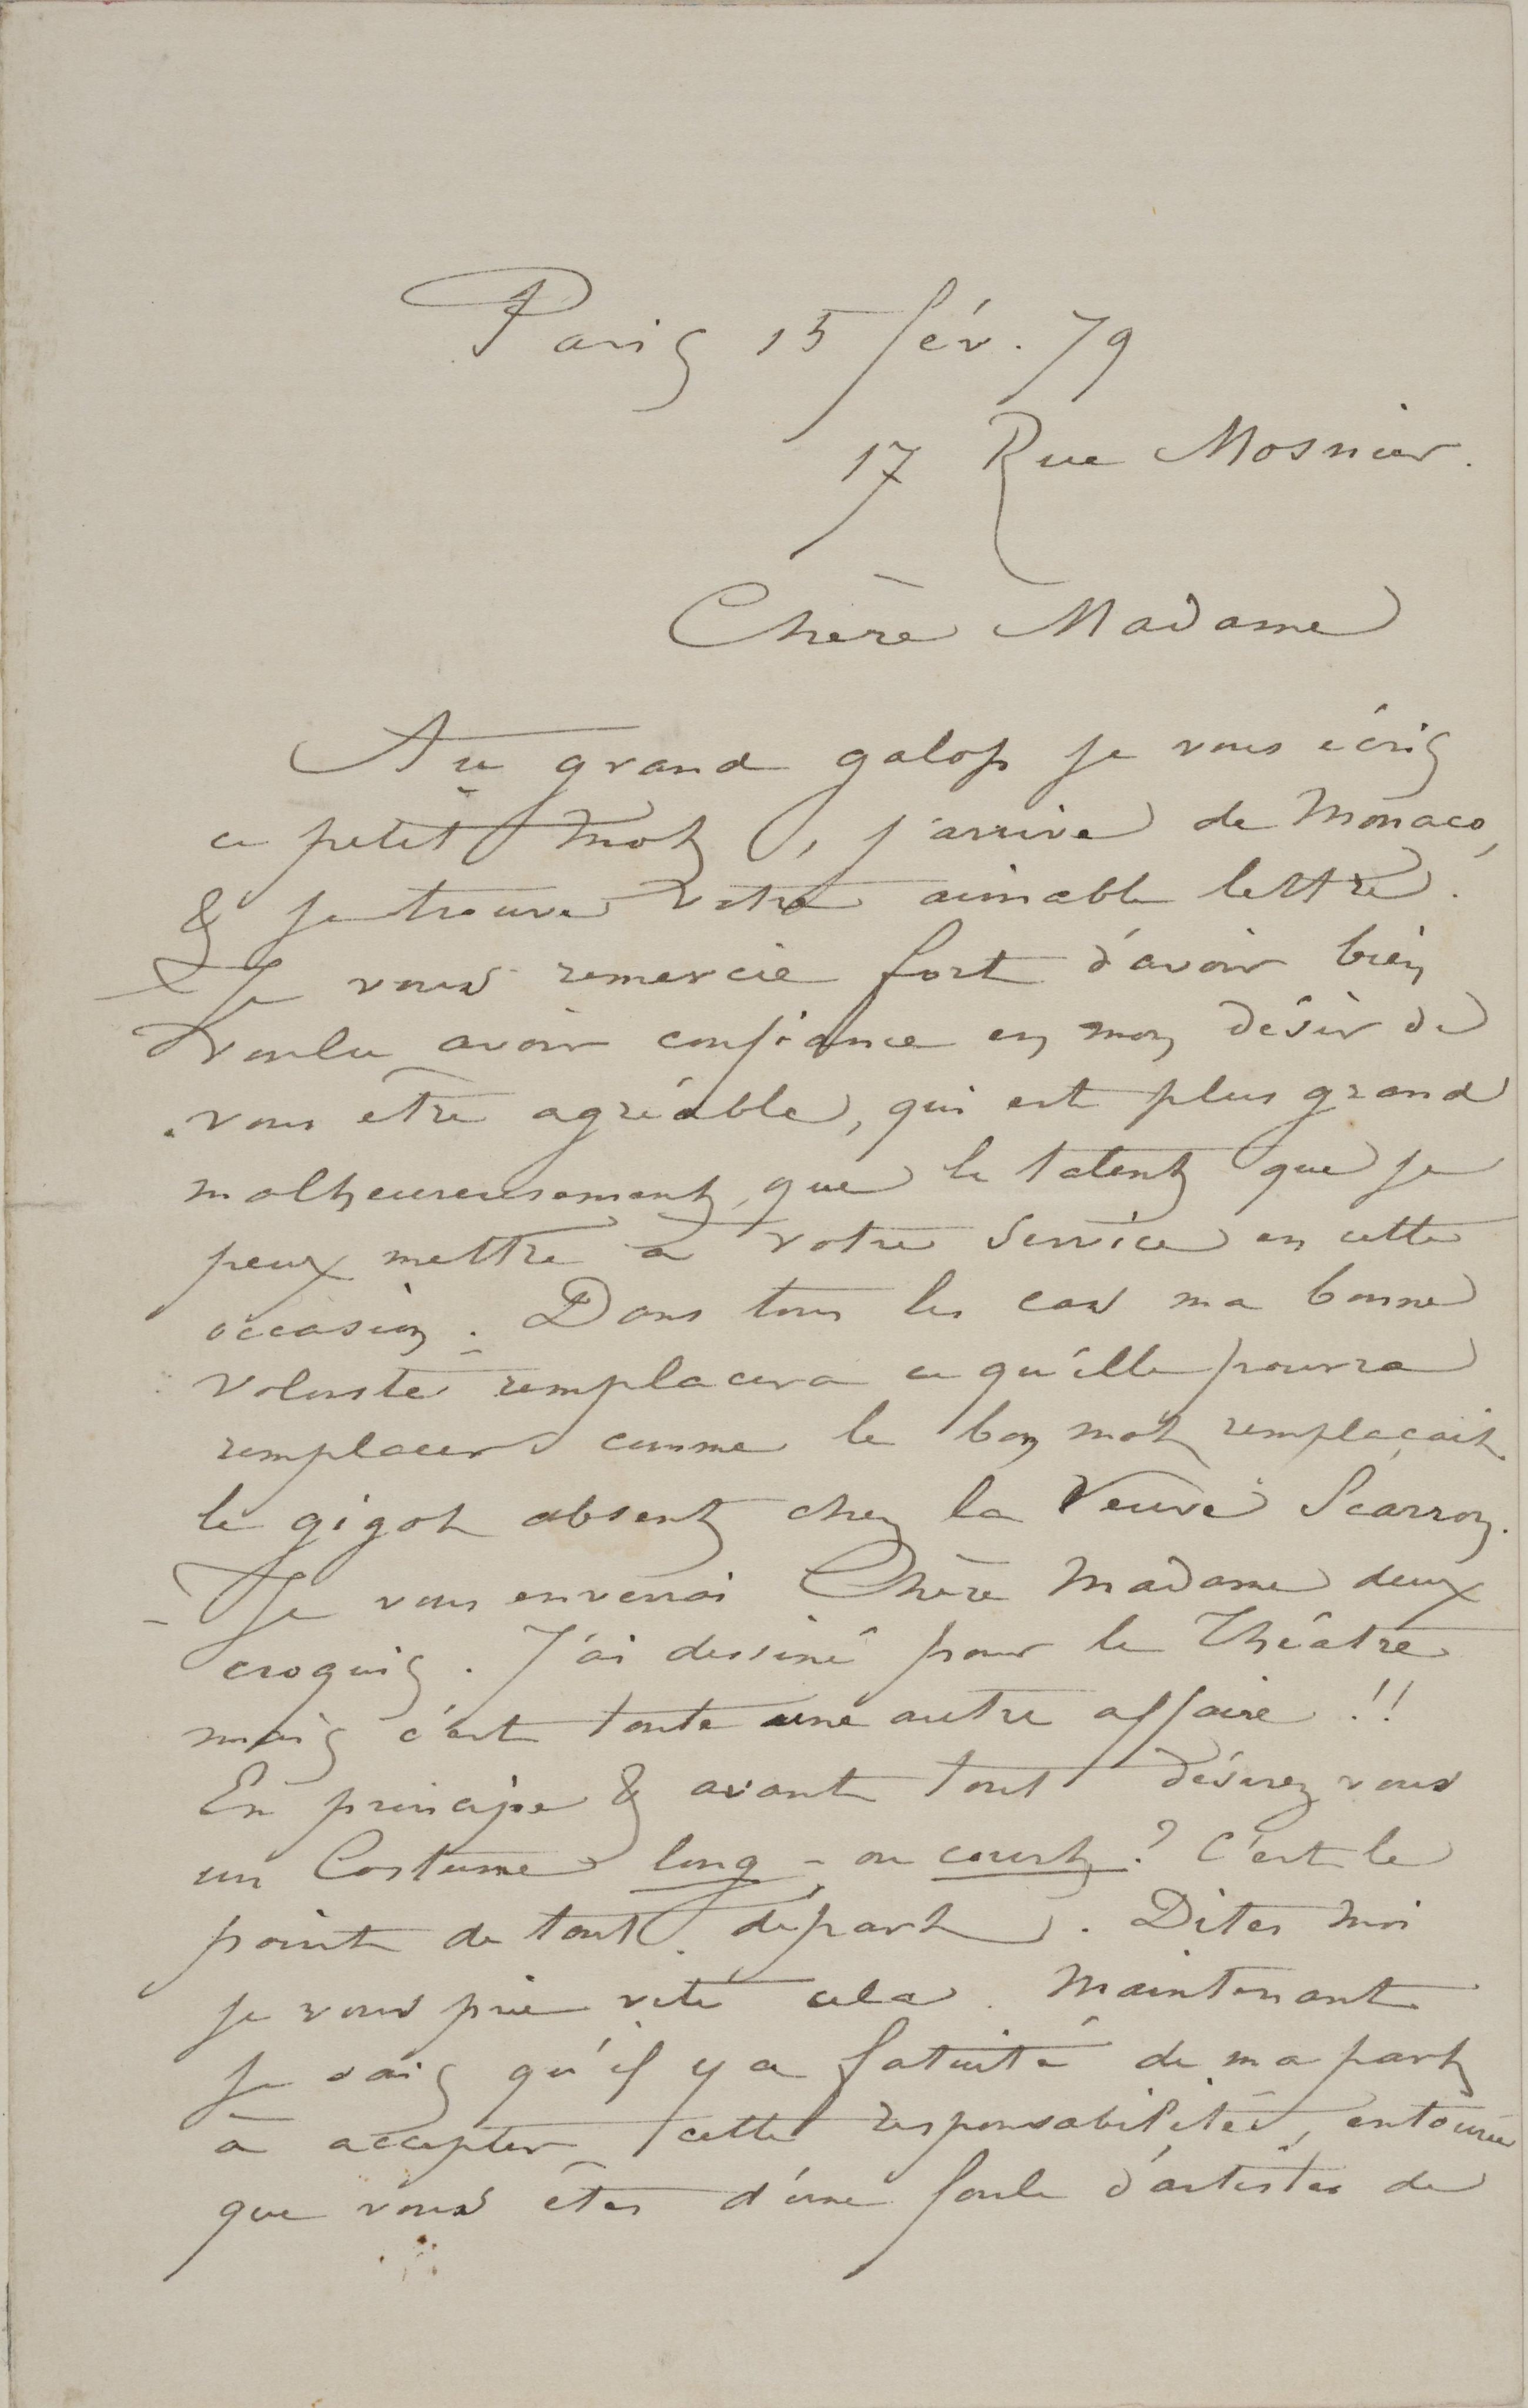 Paris 15 fév. 79
17 Rue Mosnier.
Chère Madame
Au grand galop je vous écris
ce petit mot, j'arrive de Monaco,
& je trouve votre aimable lettre.
Je vous remercie fort d'avoir bien
voulu avoir confiance en mon désir de
vous être agréable, qui est plus grand
malheureusement que le talent que je
peux mettre à votre service en cette
occasion. Dans tous les cas ma bonne
volonté remplacera ce qu'elle pourra
remplacer comme le bon mot remplaçait
le gigot absent chez la Veuve Scarron.
- Je vous enverrai Chère Madame deux
croquis. J'ai dessiné pour le Théâtre
mais c'est toute une autre affaire !!
En principe & avant tout désirez vous
un Costume long - ou court ? C'est le
point de tout départ. Dites moi
je vous prie vite cela. Maintenant
je sais qu'il y a fatuité de ma part
à accepter cette responsabilité, entourée
que vous êtes d'une foule d'artistes de